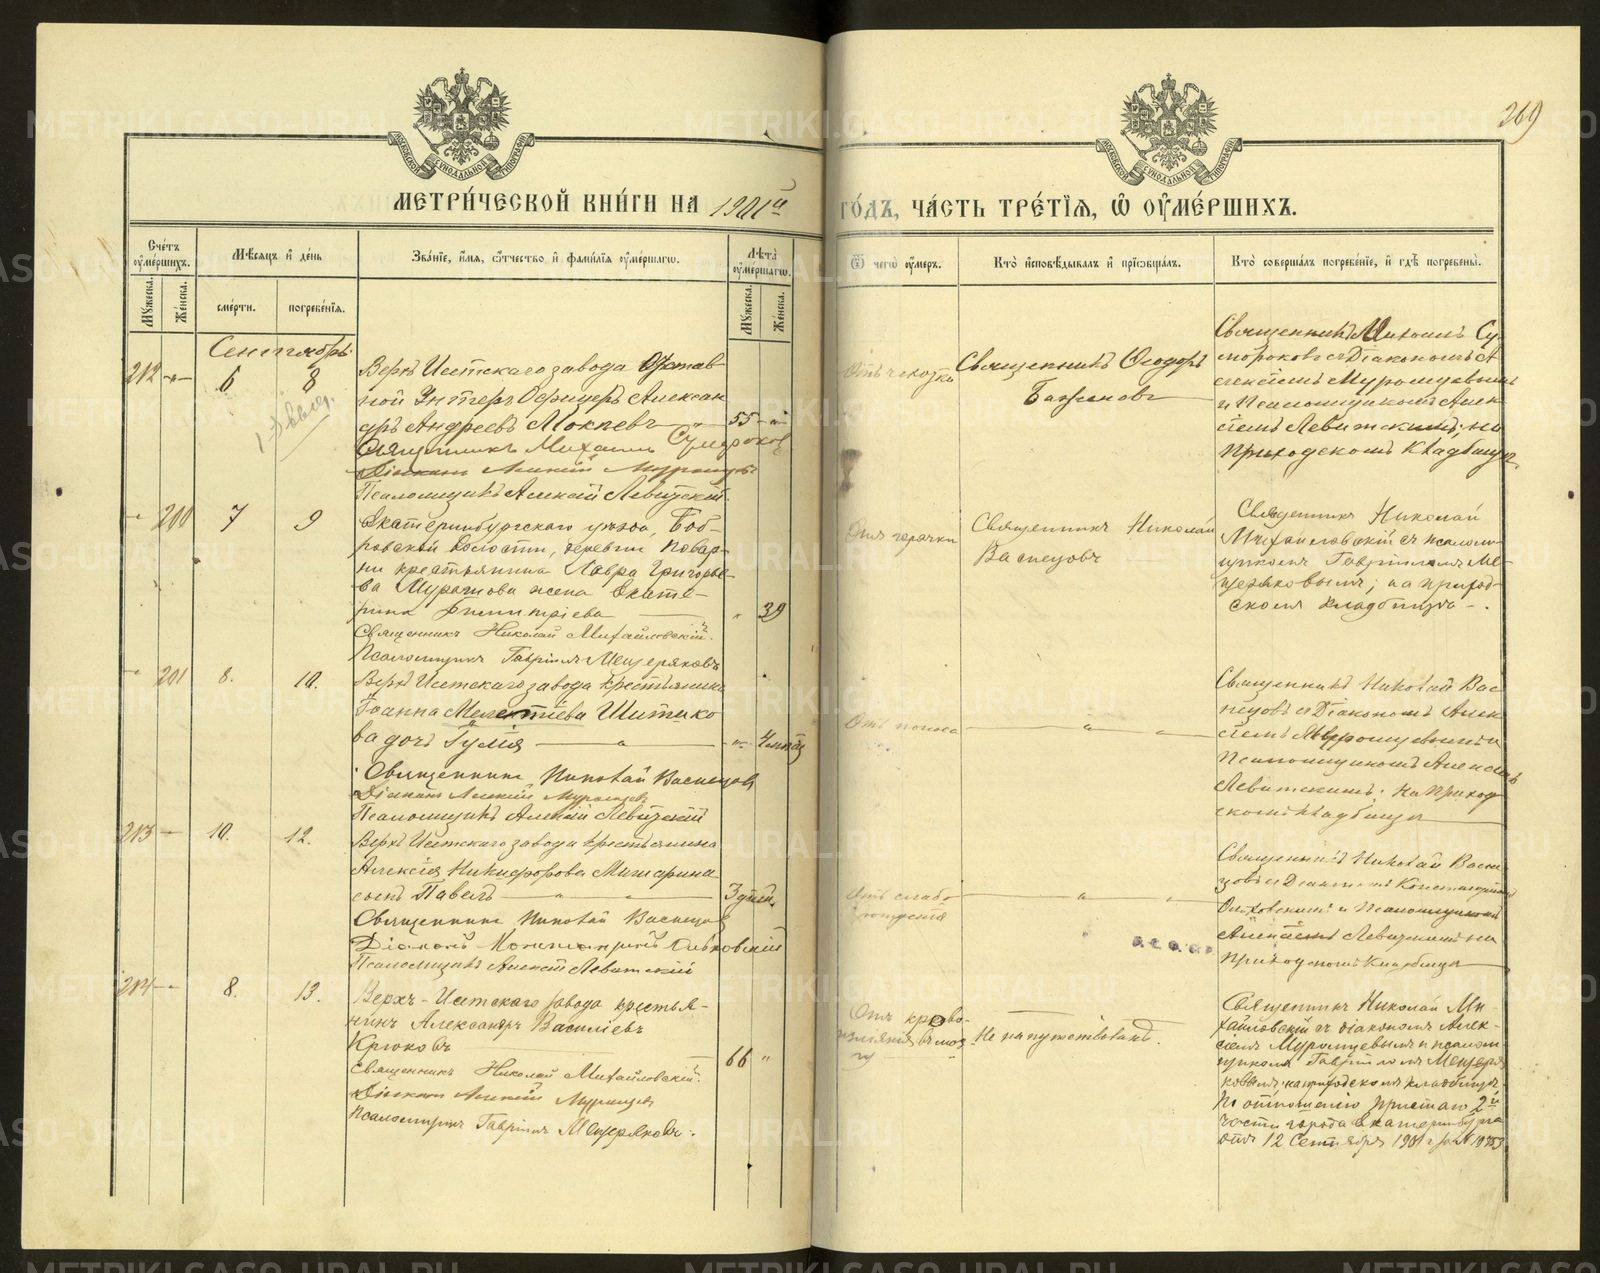 269
МЕТРИ́ЧЕСКОЙ КНИ́ГИ НА 1901й ГО́ДЪ, ЧА́СТЬ ТРЕ́ТЇѦ, Ѡ ОУМЕ́РШИХЪ.
Сче́тъ оуме́ршихъ.
Мѣ́сяцъ и де́нь
Зва́нїе, и́мя, ѻ́тчество и фами́лїя оуме́ршагѡ.
Лѣта̀ оуме́ршагѡ.
Ѿ чегѡ̀ оу́меръ.
Кто̀ исповѣ́дывалъ и прїѡбща́лъ.
Кто̀ соверша́лъ погребе́нїе, и гдѣ̀ погребены̀.
Мꙋ́жеска.
Же́нска.
сме́рти.
погребе́нїя.
Мꙋ́жеска.
Же́нска.
Сентябрь
212
6
8
Верхъ Исетскаго завода Отстав
ной Унтеръ Офицеръ Алексан
дръ Андреевъ Мокѣевъ
55
Священникъ Михаилъ Сумароковъ
Діаконъ Алексій Муромцевъ
Псаломщикъ Алексій Левитскій
Отъ чахотки
Священникъ Ѳеодоръ
Баженовъ
Священникъ Михаилъ Су
мороковъ съ Діакономъ А
лексіемъ Муромцевымъ
и Псаломщикомъ Алек
сіемъ Левитскимъ; на
приходскомъ кладбищѣ
200
7
9
Екатеринбургскаго уѣзда, Боб-
ровской волости, деревни Повар-
ни крестьянина Лавра Григорье-
ва Мурачова жена Екате-
рина Димитріева
39
Священникъ Николай Михайловскій.
Псаломщикъ Гавріилъ Мещеряковъ
Отъ горячки
Священникъ Николай
Васнецовъ
Священникъ Николай
Михайловскій съ псалом-
щикомъ Гавріиломъ Ме-
щеряковымъ; на приход-
скомъ кладбищѣ.
201
8.
10.
Верхъ Исетскаго завода крестьянина
Іоанна Мелентіева Шитико
ва дочь Іулія
4 мѣсяц
Священникъ Николай Васнецовъ
Діаконъ Алексій Муромцевъ
Псаломщикъ Алексій Левитскій
Отъ поноса
Священникъ Николай Вас
нецовъ съ Діакономъ Алек
сіемъ Муромцевымъ и
Псаломщикомъ Алексіемъ
Левитскимъ. на приход
скомъ кладбищѣ
213
10.
12.
Верхъ Исетскаго завода крестьянина
Алексія Никифорова Мишарина
сынъ Павелъ
3 дней.
Священникъ Николай Васнецовъ
Псаломщикъ Алексій Левитскій
Отъ слабо
рожденія
Священникъ Николай Васне
цовъ съ Діакономъ
и Псаломщикомъ
Алексіемъ Левитскимъ на
приходскомъ кладбищѣ
214
8.
13.
Верхъ-Исетскаго завода крестья-
нинъ Александръ Василіевъ
Крюковъ
66
Священникъ Николай Михайловскій.
Діаконъ Алексій Муромцевъ
Псаломщикъ Гавріилъ Мещеряковъ.
Отъ крово-
изліянія въ моз-
гу
Не напутствованъ.
Священникъ Николай Ми
хайловскій съ діакономъ Алек-
сіемъ Муромцевымъ и псалом-
щикомъ Гавріиломъ Мещеря
ковымъ; на приходскомъ кладбищѣ.
По отношенію пристава 2й
части города Екатеринбурга
отъ 12 Сентября 1901 г за №
METRIKI.GASO-URAL.RU